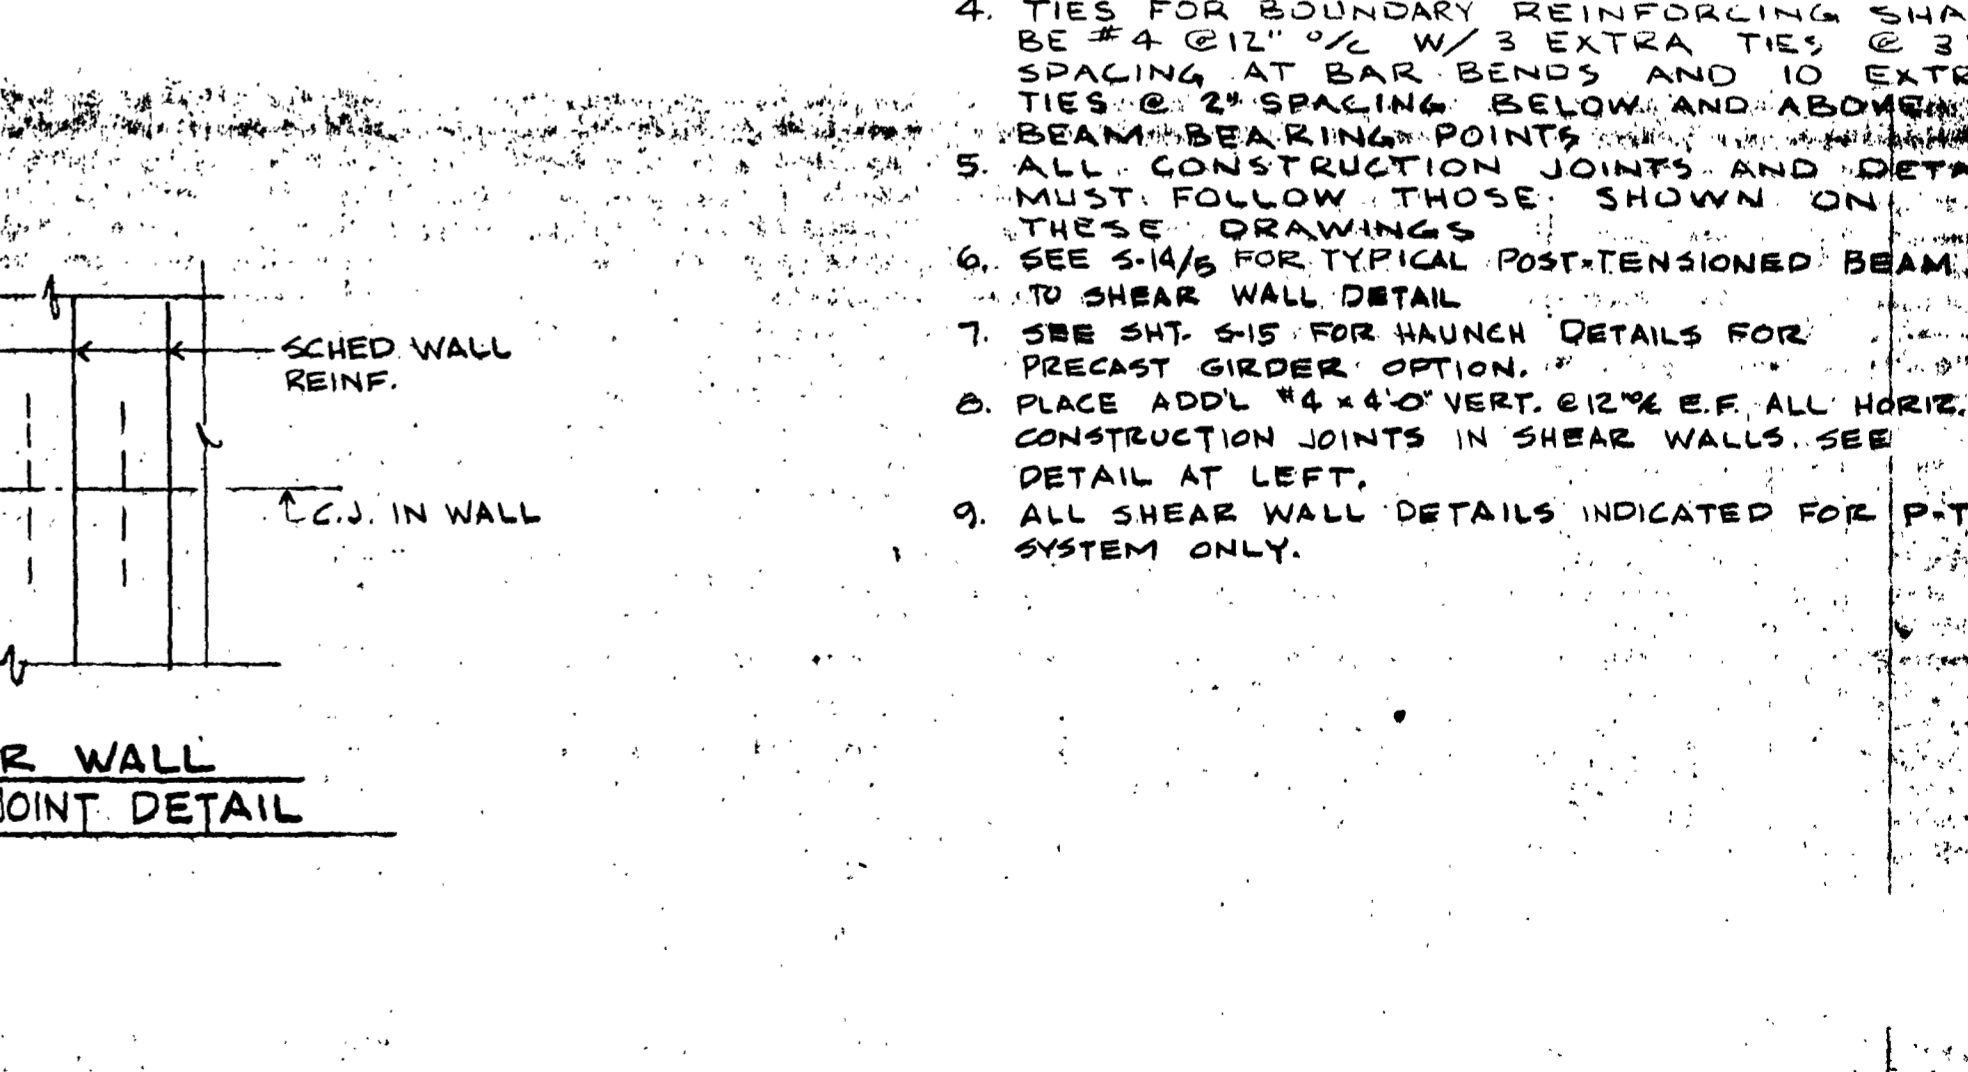 SCHED WALL
REINF.
C.J. IN WALL
R WALL
JOINT DETAIL
4. TIES FOR BOUNDARY REINFORCING SHA
BE #4 @12" o/c W/ 3 EXTRA TIES @ 3"
SPACING AT BAR BENDS AND 10 EXTR
TIES @ 2" SPACING BELOW AND ABOVE
BEAM BEARING POINTS
5. ALL CONSTRUCTION JOINTS AND DETA
MUST FOLLOW THOSE SHOWN ON
THESE DRAWINGS
6. SEE S-14/5 FOR TYPICAL POST-TENSIONED BEAM
TO SHEAR WALL DETAIL
7. SEE SHT. S-15 FOR HAUNCH DETAILS FOR
PRECAST GIRDER OPTION.
8. PLACE ADD'L #4 x 4'-0" VERT. @ 12" o/c E.F. ALL HORIZ.
CONSTRUCTION JOINTS IN SHEAR WALLS. SEE
DETAIL AT LEFT.
9. ALL SHEAR WALL DETAILS INDICATED FOR P-T
SYSTEM ONLY.